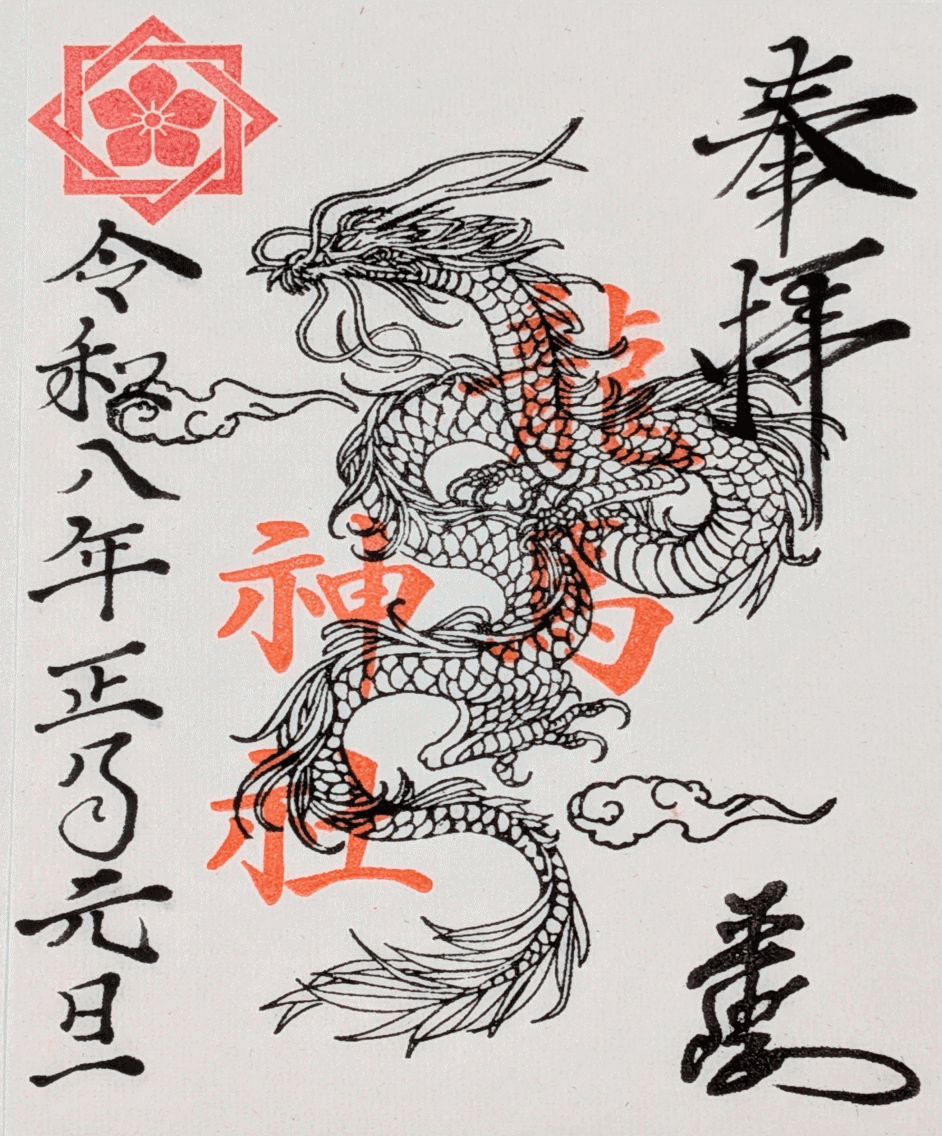 奉拝
龍馬
神社
令和八年正月元旦